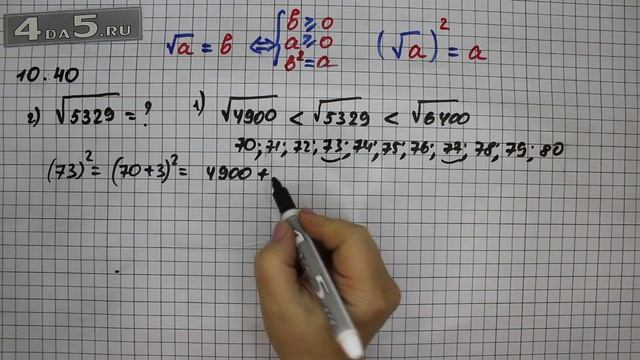 4DA5.RU
√a = b ⇔ { b ⩾ 0
a ⩾ 0
b² = a
(√a)² = a
10.40
г) √5329 = ?
1) √4900 < √5329 < √6400
70; 71; 72; 73; 74; 75; 76; 77; 78; 79; 80
(73)² = (70+3)² = 4900 +